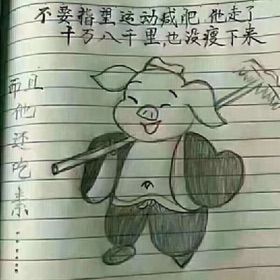 不要指望运动减肥，他走了
十万八千里，也没瘦下来
而且他还吃素